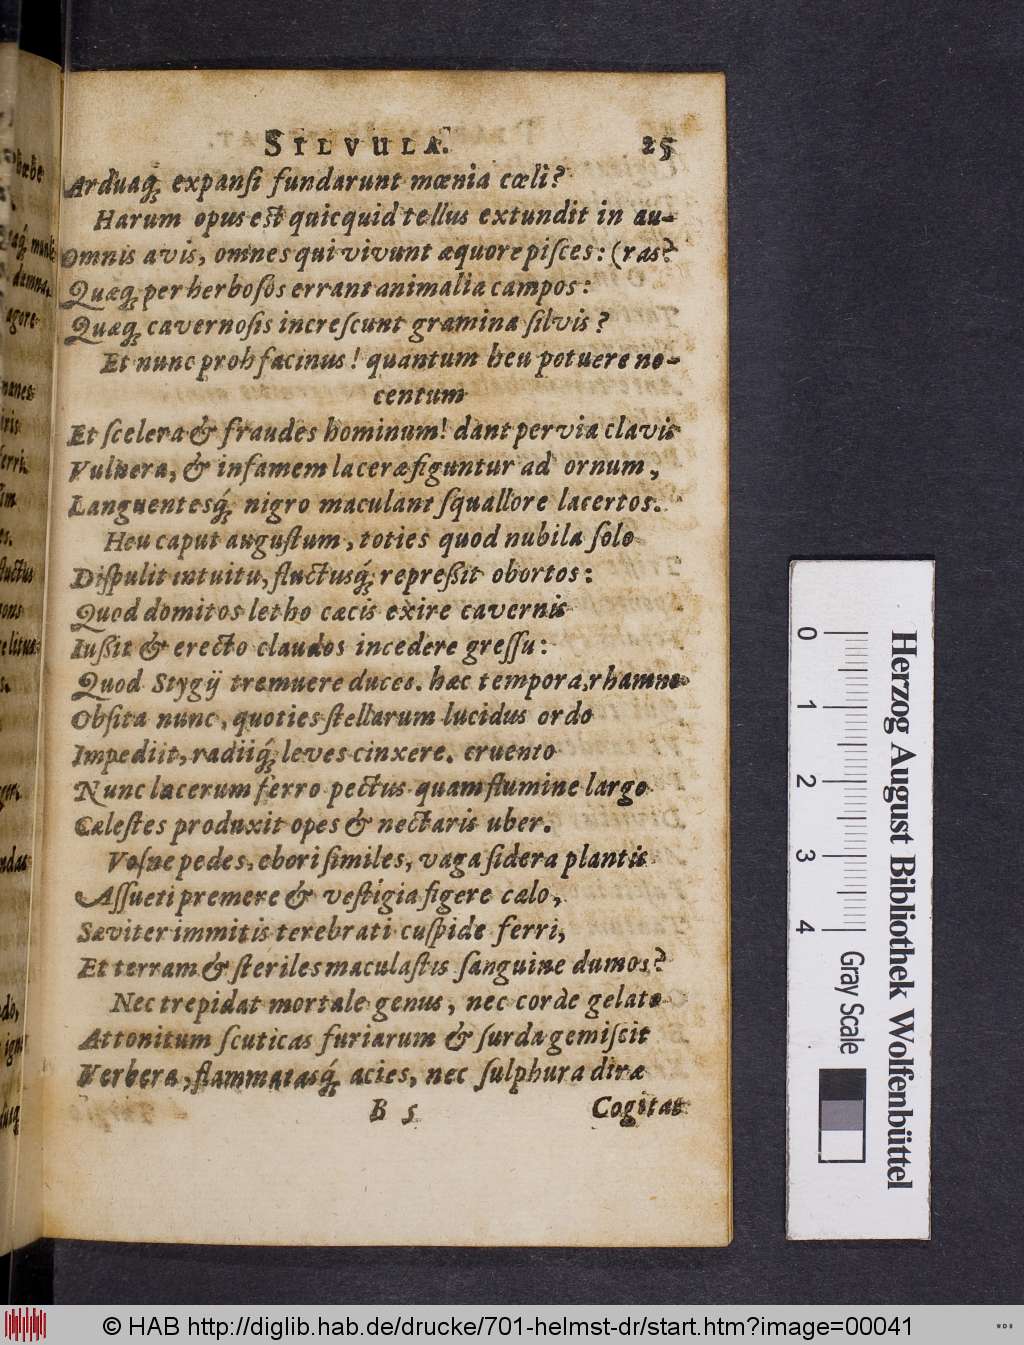 SILVULÆ. 25
Arduaq́; expansi fundarunt mœnia cœli?
Harum opus est quicquid tellus extundit in au-
Omnis avis, omnes qui vivunt æquore pisces: (ras?
Quæq́; per herbosos errant animalia campos:
Quæq́; cavernosis increscunt gramina silvis?
Et nunc proh facinus! quantum heu potuere no-
centum
Et scelera & fraudes hominum! dant pervia clavis
Vulnera, & infamem laceræ figuntur ad ornum,
Languentesq́; nigro maculant squallore lacertos.
Heu caput augustum, toties quod nubila solo
Dispulit intuitu, fluctusq́; repreßit obortos:
Quod domitos letho cæcis exire cavernis
Iußit & erecto claudos incedere gressu:
Quod Stygij tremuere duces. hæc tempora, rhamno
Obsita nunc, quoties stellarum lucidus ordo
Impediit, radiiq́; leves cinxere. cruento
Nunc lacerum ferro pectus quam flumine largo
Cælestes produxit opes & nectaris uber.
Vosne pedes, ebori similes, vaga sidera plantis
Assueti premere & vestigia figere cælo,
Sæviter immitis terebrati cuspide ferri,
Et terram & steriles maculastis sanguine dumos?
Nec trepidat mortale genus, nec corde gelato
Attonitum scuticas furiarum & surda gemiscit
Verbera, flammatasq́; acies, nec sulphura diræ
B 5 Cogitat
bæbe
agore
nanes
iris
fluctus
0 1 2 3 4
Gray Scale
Herzog August Bibliothek Wolfenbüttel
© HAB http://diglib.hab.de/drucke/701-helmst-dr/start.htm?image=00041
WDB